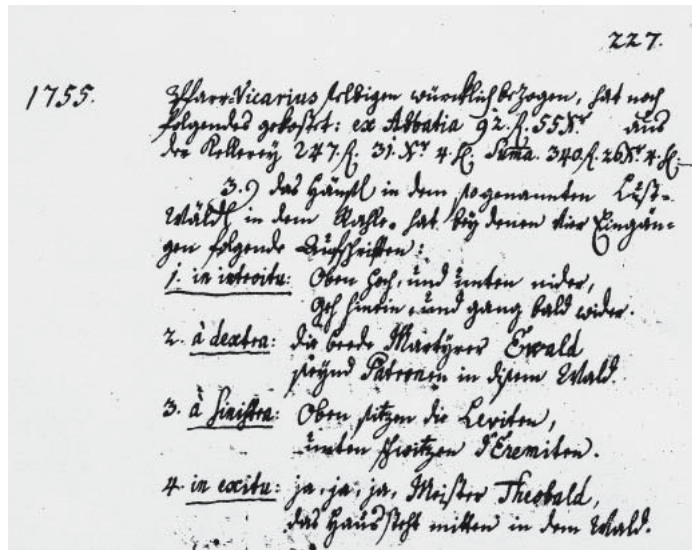 227.
1755. Pfarr-Vicarius selbigen würcklich bezogen, hat noch
folgendes gekostet: ex Abbatia 92. f. 55 Xr aus
der Kellerey 247. f. 31. Xr 4. hl. Summa. 340. f. 26 Xr 4. hl.
3.) das Häusl in dem so genannten Lust-
Wäldl in dem Kahle. hat bey denen vier Eingän-
gen folgende Aufschriften:
1. in introitu: Oben hoch, und unten nider,
Geh hinein, und gang bald wider.
2. à dextra: die beede Martyrer Ewald
seynd Patronen in disem Wald.
3. à sinistra: Oben sitzen die Leviten,
unten schwitzen d'Eremiten.
4. in exitu: ja, ja, ja, Meister Theobald,
das Haus steht mitten in dem Wald.